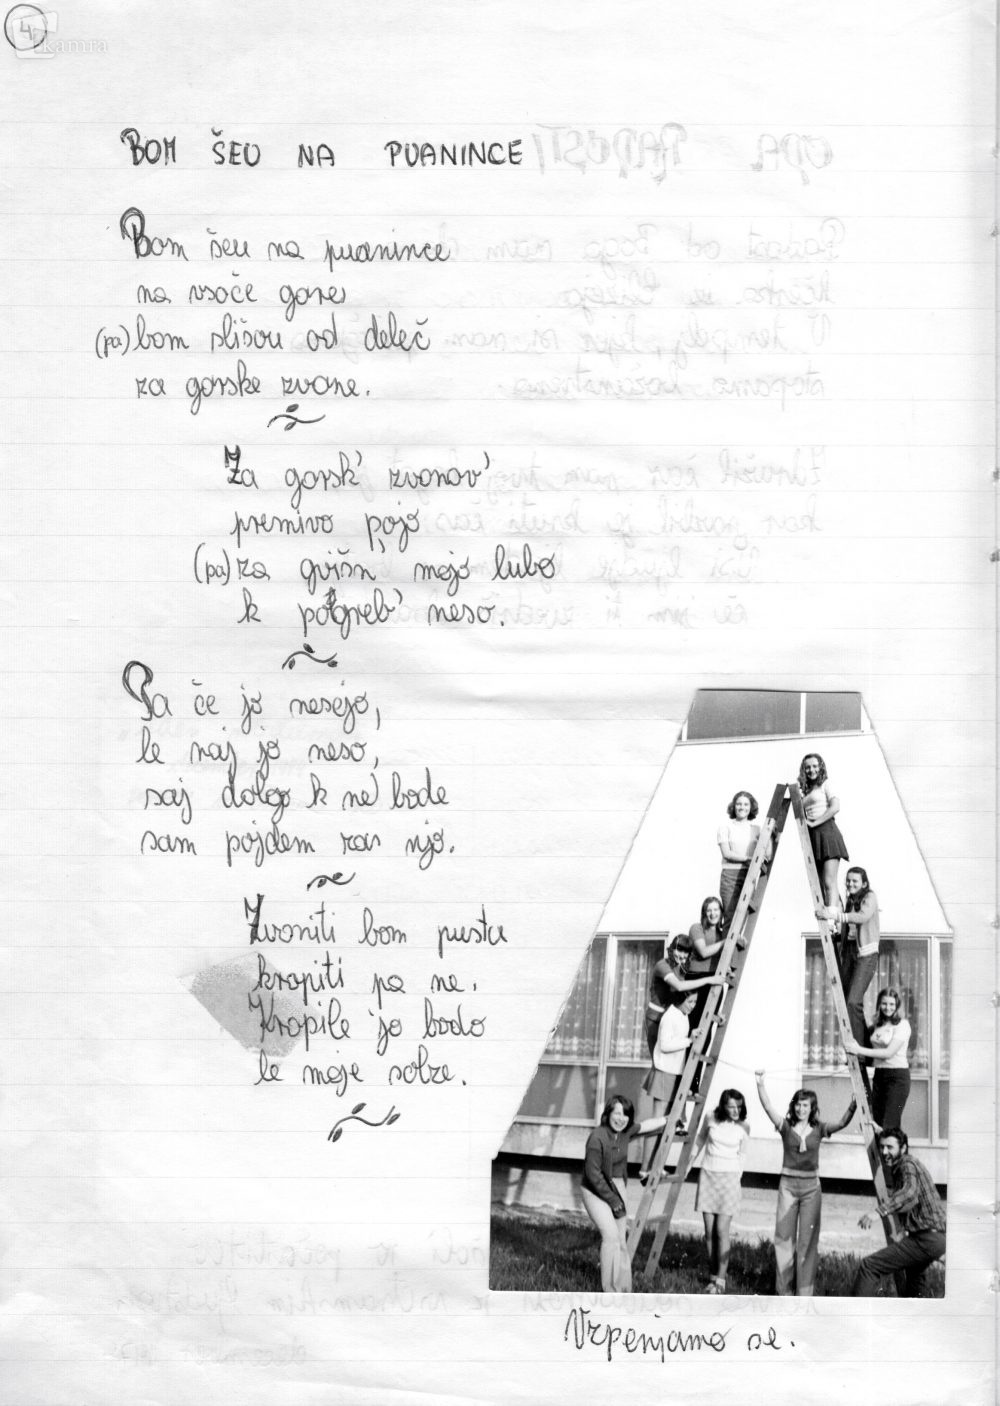 4
kamra
BOM ŠEU NA PUANINCE
Bom šeu na puanince
na usoče gore,
(pa) bom slišou od deleč
za gorske zvone.
Za gorsk' zvonov'
premivo pojo
(pa) za gvišn' mojo lubo
k pogreb' neso.
Pa če jo nesejo,
le naj jo neso,
saj dolgo k ne bode
sam pojdem zas njo.
Zvoniti bom pustu
kropiti pa ne.
Kropile jo bodo
le moje solze.
Vzpenjamo se.